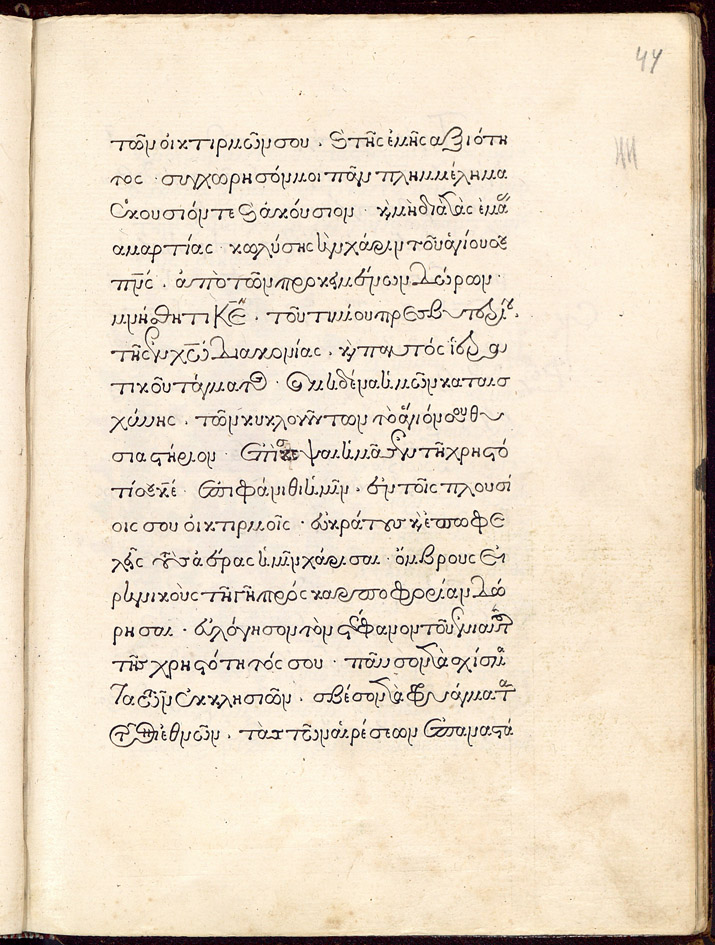 44
τῶν οἰκτιρμῶν σου · ϗ τῆς ἐμῆς αξιότη
τος · συγχωρησόν μοι πᾶν πλημμέλημα
ἑκουσιόν τε ϗ ἀκούσιον · ϗ μὴ διὰ τὰς ἐμὰ
αμαρτίας · κωλύσης τὴν χάριν τοῦ ἁγίου σου
πνς · ἀπὸ τῶν προκειμένων δώρων ·
μνήσθητι κε · τοῦ τιμίου πρεσβυτερίου ·
τῆς ἐν χω διακονίας · ϗ παντός ἱερα
τικοῦ τάγματος · ϗ μηδένα ἡμῶν καταισ
χύνης · τῶν κυκλούντων τὸ ἅγιόν σου θυ
σιαστήριον · ἐπίσκεψαι ἡμᾶς ἐν τῆ χρηστό
τί σου κε · ἐπιφάνηθι ἡμῖν · ἐν τοῖς πλουσί
οις σου οἰκτιρμοῖς · εὐκράτους ϗ ἐπωφε
λεῖς τοὺς ἀέρας ἡμῖν χάρισαι · ὄμβρους εἰ
ρηνικοὺς τῆ γῆ πρός καρποφορίαν δώ
ρησαι · εὐλόγησον τὸν στέφανον τοῦ ἐνιαυτοῦ
τῆς χρηστότητός σου · παῦσον τὰ σχίσμα
τα τῶν ἐκκλησιῶν · σβέσον τὰ φρυάγματα
τῶν ἐθνῶν · τὰς τῶν αἱρέσεων ἐπαναστά